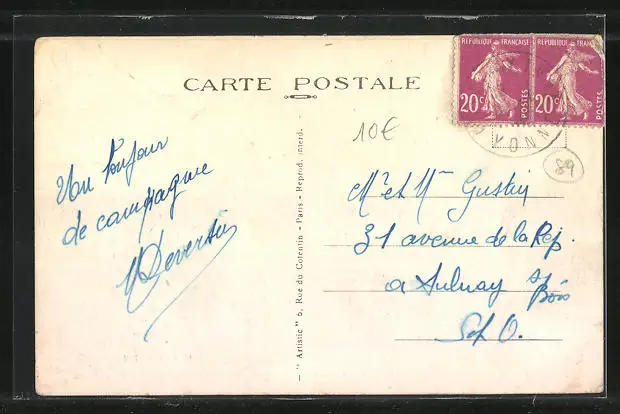 CARTE POSTALE
REPUBLIQUE FRANÇAISE
20c POSTES
REPUBLIQUE FRANÇAISE
20c POSTES
YONN
10€
89
Un bonjour
de campagne
Mr et Mme Gustin
31 avenue de la Rep.
a Aulnay s/
Bois
S et O.
"Artistic" 6, Rue du Cotentin - Paris - Reprod. interd.